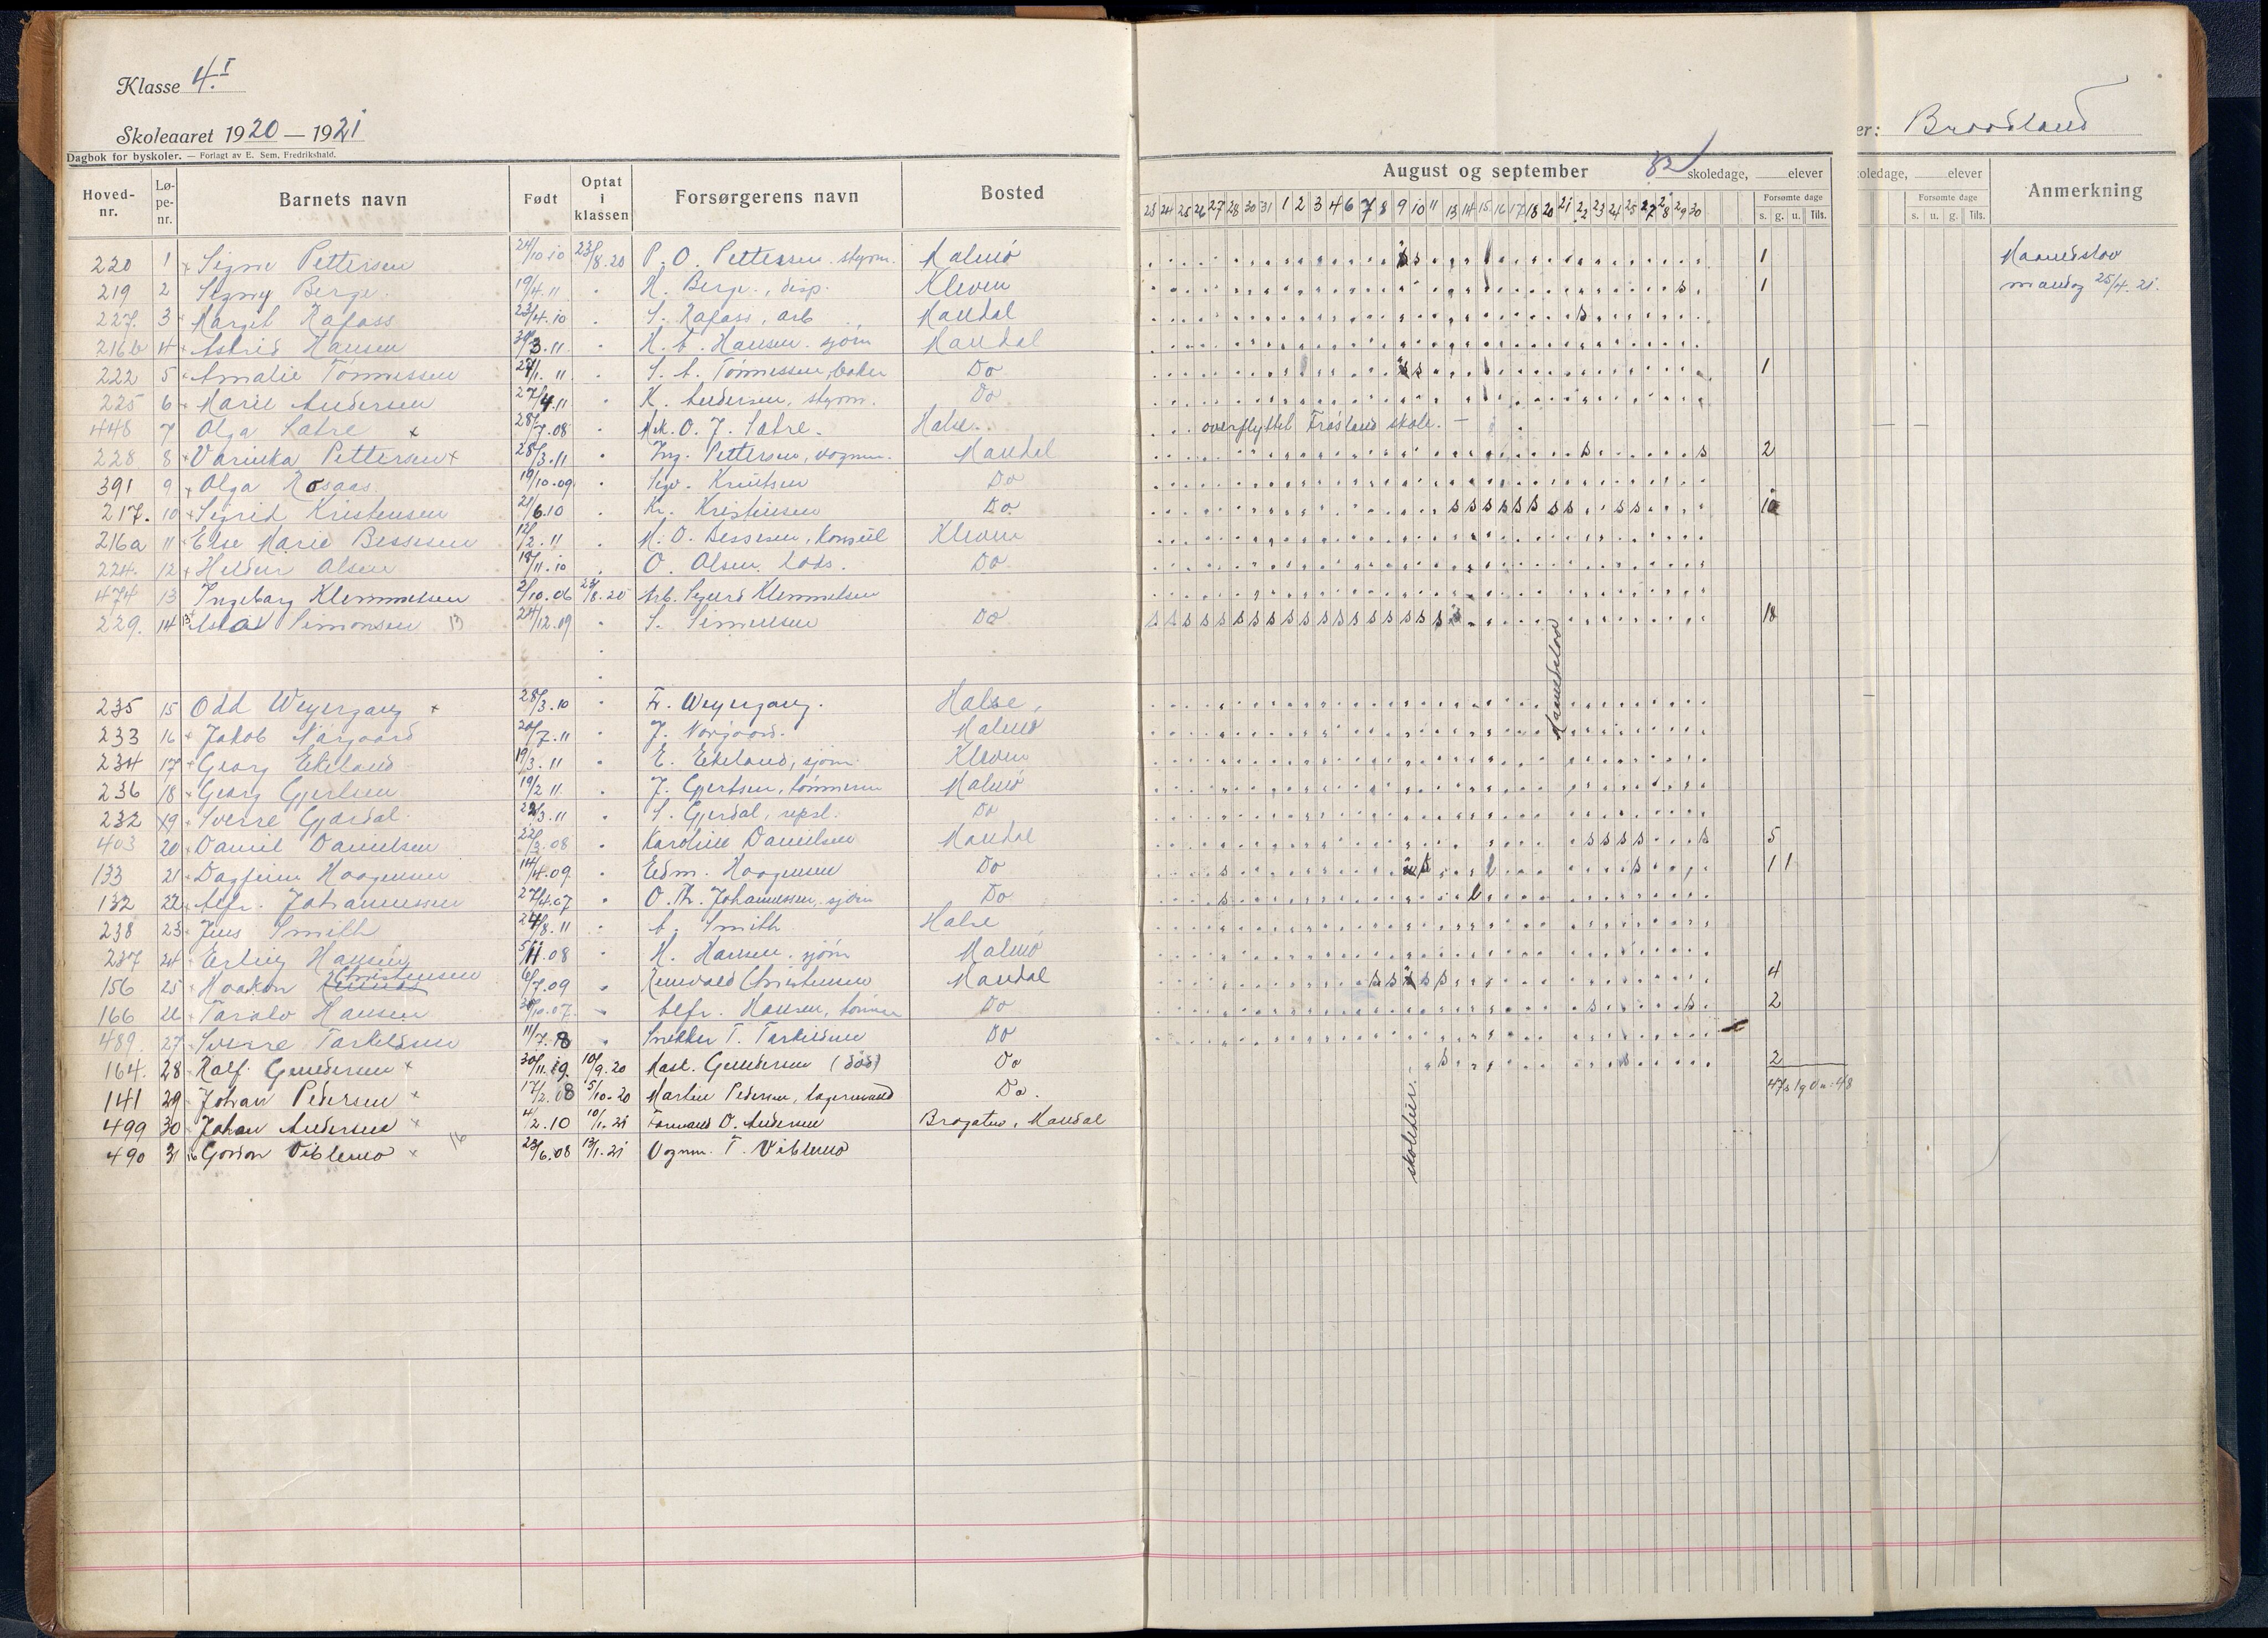 Klasse 4.I
Skoleaaret 1920 — 1921
Dagbok for byskoler. — Forlagt av E. Sem, Fredrikshald.
er: Broosland
Hoved-nr. Lø-pe-nr. Barnets navn Født Optat i klassen Forsørgerens navn Bosted
August og september skoledage, elever
koledage, elever
Anmerkning
Forsømte dage
s. g. u. Tils.
Forsømte dage
s. u. g. Tils.
23 24 25 26 27 28 30 31 1 2 3 4 6 7 8 9 10 11 13 14 15 16 17 18 20 21 22 23 24 25 27 28 29 30
220 1 Signe Pettersen 24/10.10 23/8.20 P. O. Pettersen. styrm. Malmø 1 Maanedslov
219 2 Signy Berge 19/4.11 H. Berge, disp. Kleven 1 mandag 25/4.21.
227. 3 Margit Rafoss 23/4.10 S. Rafoss, arb Mandal
216b 4 Astrid Hansen 30/3.11. H. A. Hansen. sjøm Mandal
222 5 Amalie Tønnessen 1.11 S. A. Tønnessen, baker Do 1
225 6 Marie Andersen 27/4.11 K. Andersen, styrm. Do
448 7 Olga Sætre x 28/7.08 Mek. O. J. Sætre. Halse. overflyttet Frøsland skole. —
228 8 Varinka Pettersen x 28/3.11 Ing. Pettersen, vognm. Mandal 2
391 9 Olga Rosaas 19/10.09 Sigv. Knutsen Do
217. 10 Sigrid Kristensen 21/6.10 Kr. Kristensen Do. 10
216a 11 Else Marie Bessesen 12/2.11 M. O. Bessesen, Konsul Kleven
224. 12 Helene Olsen 18/11.10 O. Olsen. Lods. Do.
474 13 Ingeborg Klemmetsen 2/10.06 23/8.20 Arb. Sigurd Klemmetsen
229. 14 Simonsen 13 24/12.09 S. Simonsen Do 18
Maanedslov
235 15 Odd Weyergang x 28/3.10 Fr. Weyergang. Halse,
233 16 Jakob Nørgaard 20/7.11 J. Nørgaard. Malmø
234 17 Georg Ekeland 19/3.11 E. Ekeland, sjøm. Kleven
236 18 Georg Gjertsen 19/2.11. J. Gjertsen, tømmerm Malmø
232 19 Sverre Gjerdal. 3.11 S. Gjerdal, repsl. Do
403 20 Daniel Danielsen 22/3.08 Karoline Danielsen Mandal 5
133 21 Dagfinn Haagensen 14/4.09 Edm. Haagensen Do 1 1
132 22 Alfr. Johannessen 27/4.07 O. Th. Johannessen, sjøm Do
238 23 Jens Smith 24/8.11 A. Smith Halse
237 24 Erling Hansen 5/11.08 H. Hansen. sjøm Malmø
156 25 Haakon Christensen 6/7.09 Reinvald Christensen Mandal 4
166 26 Taralv Hansen 30/10.07. Alfr. Hansen, tømm Do 2
489. 27 Sverre Tarkildsen 11/7.8 Snekker T. Tarkildsen Do
164. 28 Ralf Gundersen x 30/11.19. 10/9.20 Mask. Gundersen (død) Do 2
141 29 Johan Pedersen x 17/2.08 5/10-20 Martin Pedersen, lagermand Do. 47s 1g 0u = 48
499 30 Johan Andersen x 4/2.10 10/1.21 Formand O. Andersen Brogaten, Mandal
490 31 Gordon Viblemo x 16 23/6.08 13/1.21 Vognm. T. Viblemo
skolefrier.